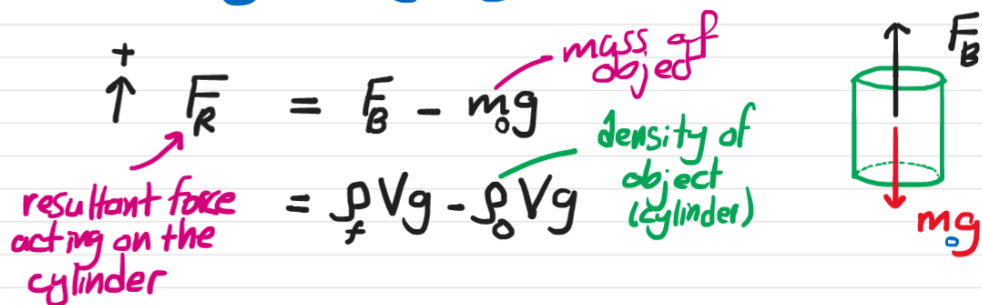 +
↑ F_R = F_B - m_o g
mass of
object
resultant force
acting on the
cylinder
= ρ_f Vg - ρ_o Vg
density of
object
(cylinder)
F_B
m_o g